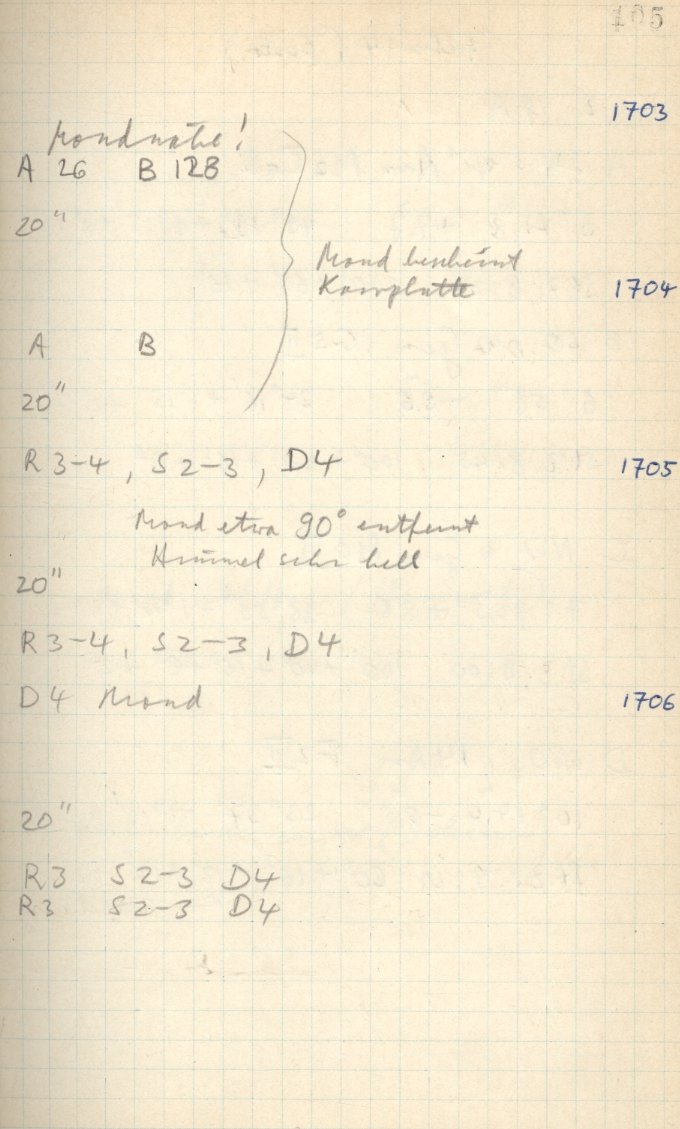 165
1703
Mondnähe!
A 26 B 128
20"
Mond bescheint
Korrplatte
1704
A B
20"
R 3-4, S 2-3, D4
1705
Mond etwa 90° entfernt
Himmel sehr hell
20"
R 3-4, S 2-3, D4
D4 Mond
1706
20"
R3 S 2-3 D4
R3 S 2-3 D4